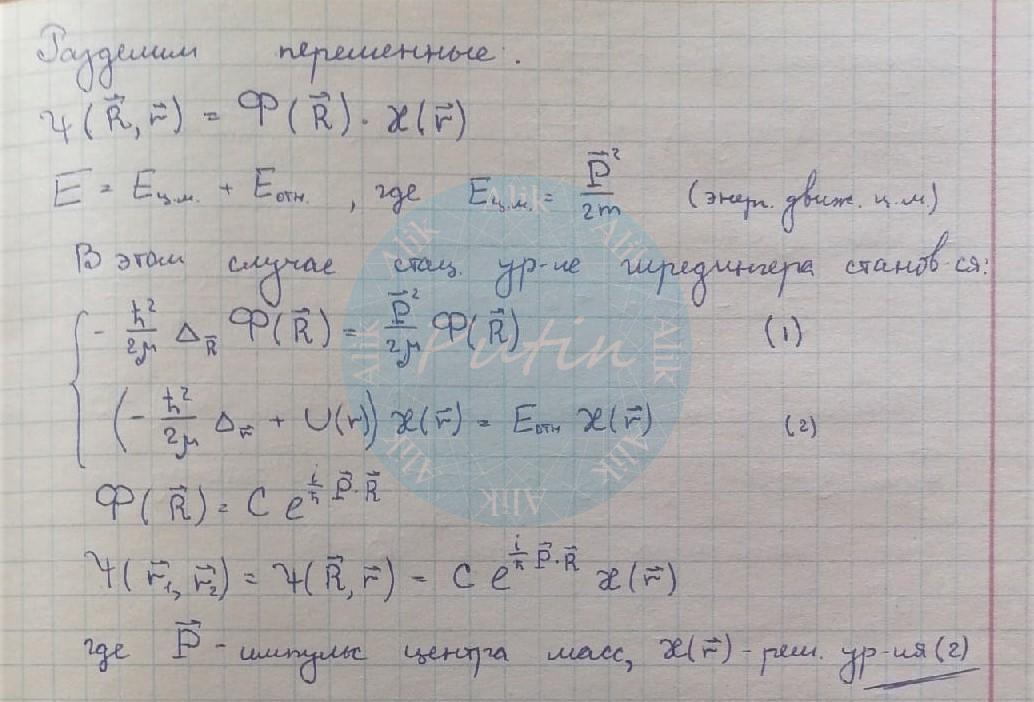 Разделим переменные:
Ψ(R⃗, r⃗) = Φ(R⃗) · ϰ(r⃗)
E = E ц.м. + E отн. , где E ц.м. = P⃗²/2m (энерг. движ. ц.м.)
В этом случае стац. ур-ие шредингера станов-ся:
{ - ħ²/2μ Δ_R⃗ Φ(R⃗) = P⃗²/2μ Φ(R⃗) (1)
(- ħ²/2μ Δ_r⃗ + U(r)) ϰ(r⃗) = E отн ϰ(r⃗) (2)
Φ(R⃗) = C e^(i/ħ P⃗·R⃗)
Ψ(r⃗₁, r⃗₂) = Ψ(R⃗, r⃗) = C e^(i/ħ P⃗·R⃗) ϰ(r⃗)
где P⃗ - импульс центра масс, ϰ(r⃗) - реш. ур-ия (2)
Alik Alik Alik Alik Alik Alik Alik Alik
Putin